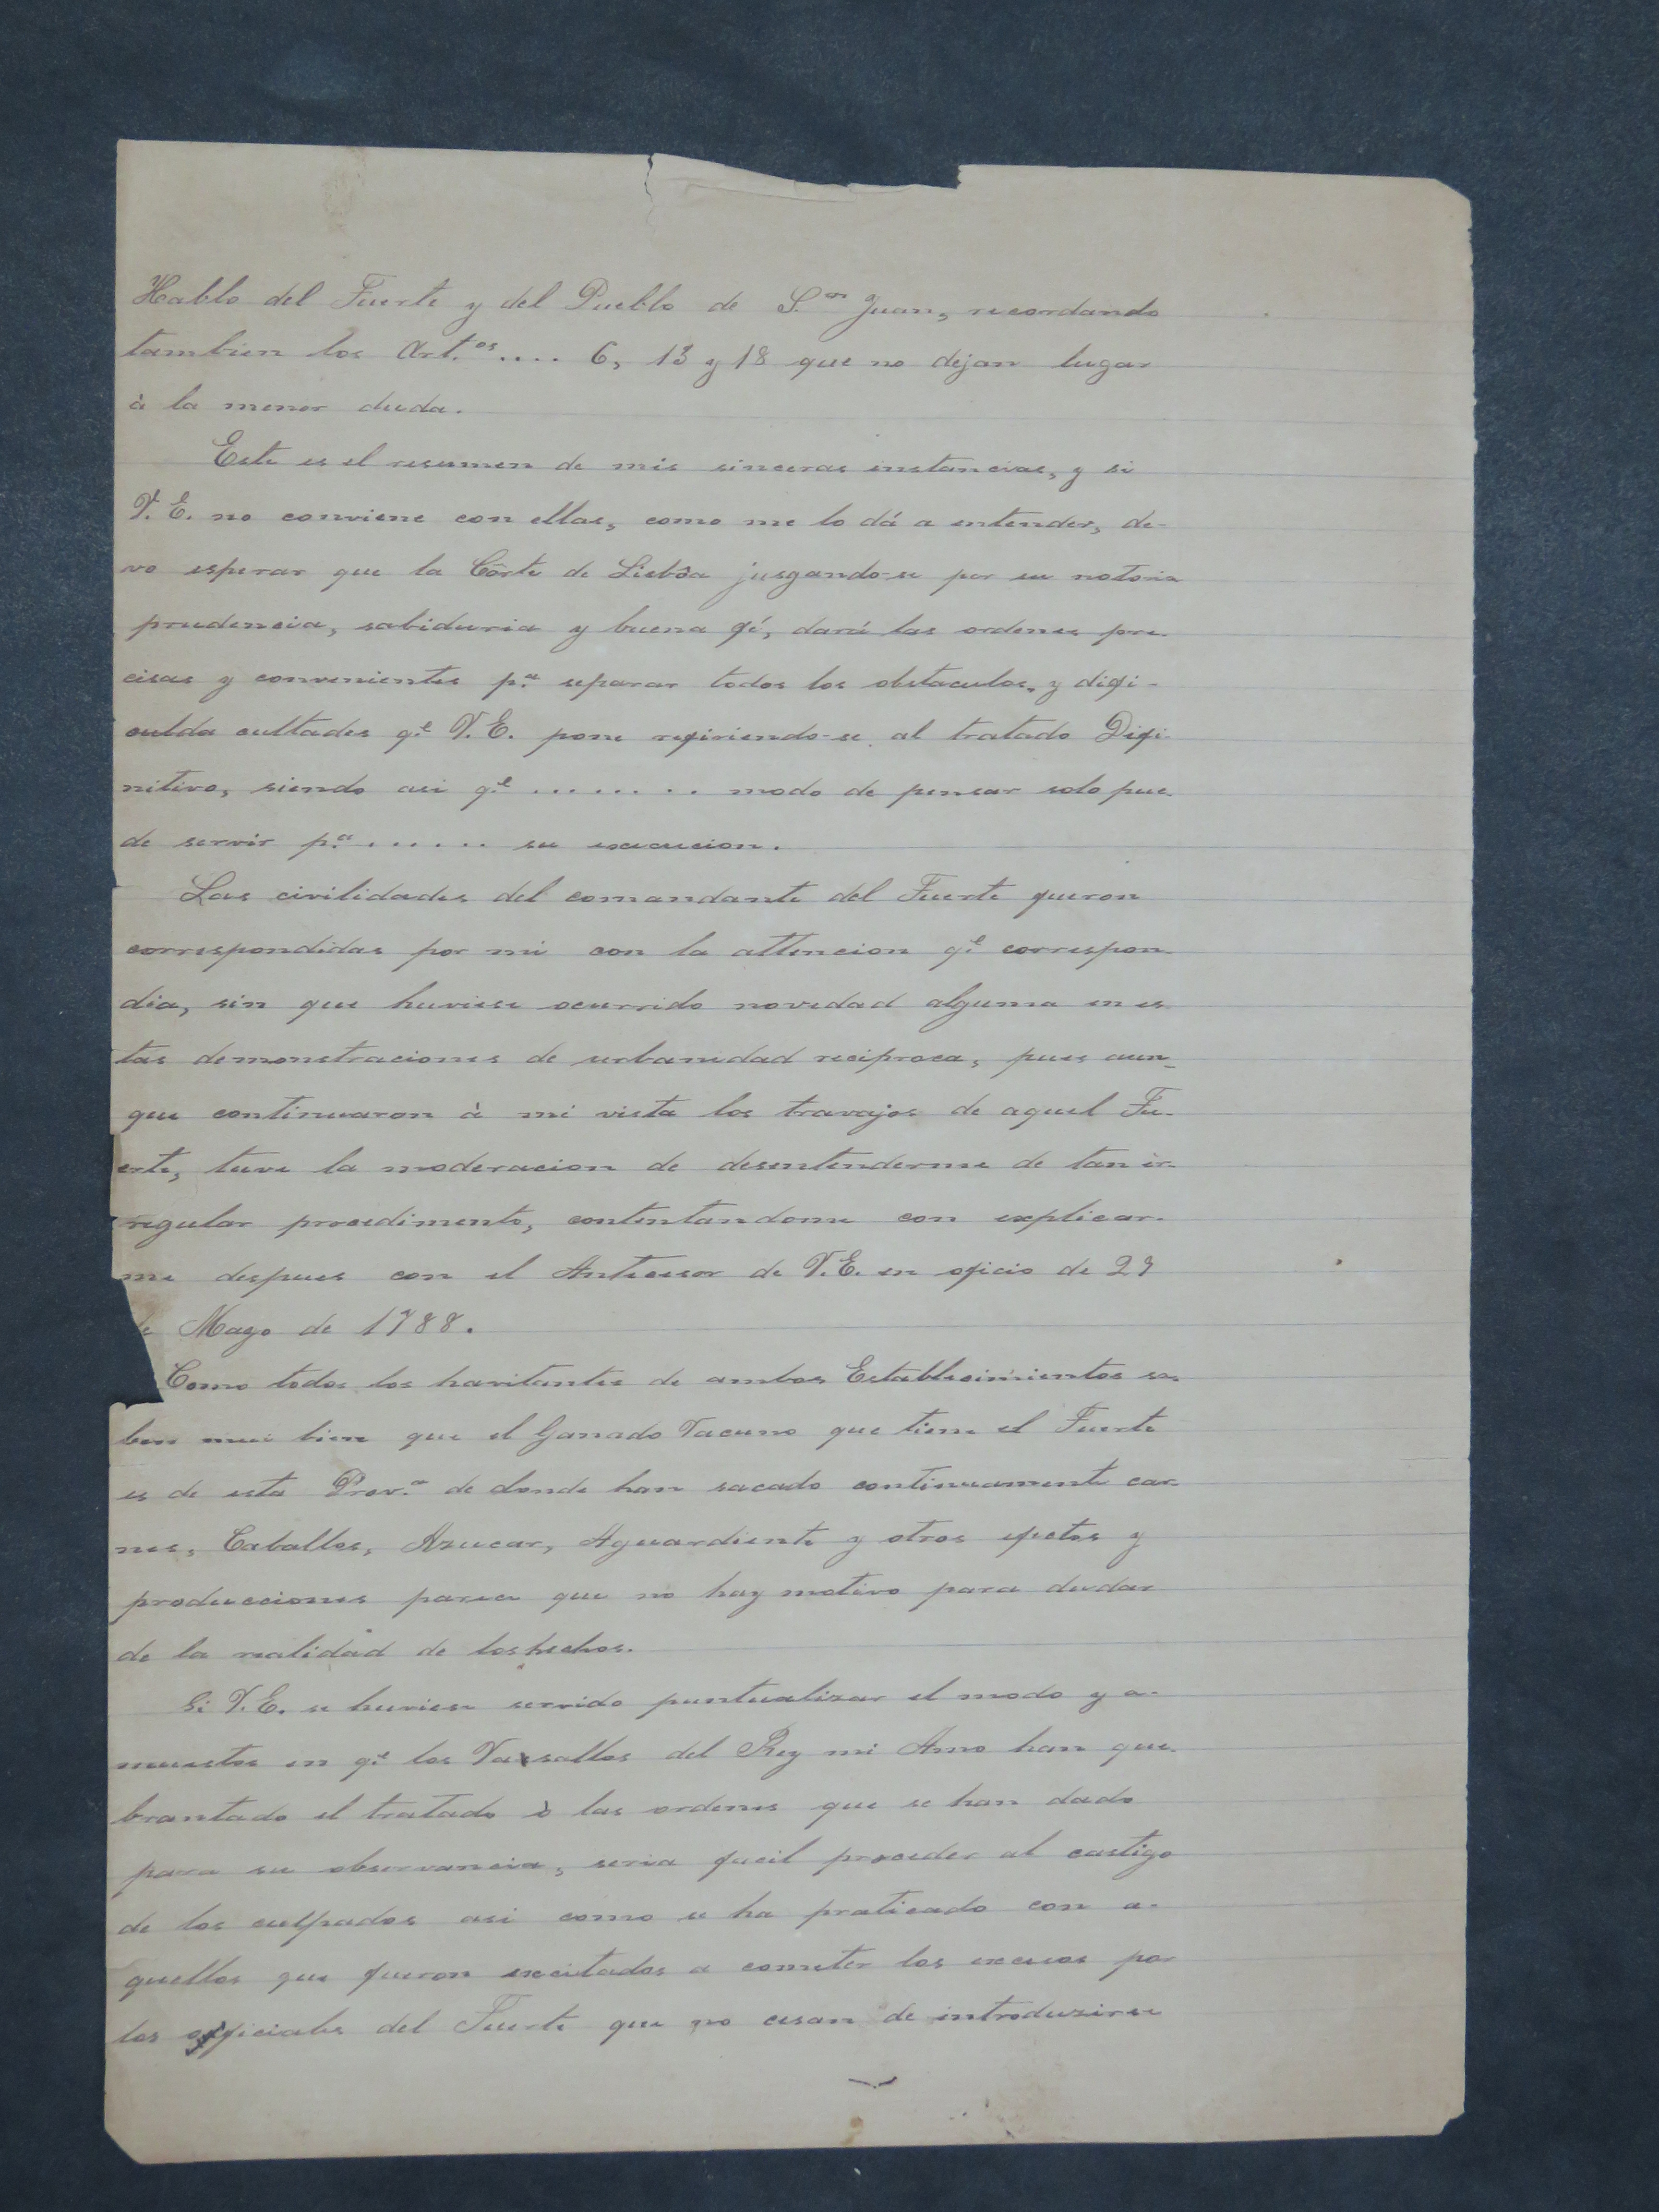 Hablo del Fuerte y del Pueblo de S.ⁿ Juan, recordando
tambien los Art.ᵒˢ.... 6, 13 y 18 que no dejan lugar
à la menor duda.
Este es el resumen de mis sinceras instancias, y si
V. E. no conviene con ellas, como me lo dá a entender, de-
vo esperar que la Côrte de Lisbôa jusgando-se por su notoria
prudencia, sabiduria y buena fé, dará las ordenes pre-
cisas y convenientes p.ᵃ separar todos los obstaculos, y difi-
culda cultades q.ᵉ V. E. pone refiriendo-se al tratado Difi-
nitivo, siendo asi q.ᵉ ........ modo de pensar solo pue-
de servir p.ᵃ ...... su execucion.
Las civilidades del comandante del Fuerte fueron
correspondidas por mi con la attencion q.ᵉ correspon-
dia, sin que huviese ocurrido novedad alguma en es
tas demonstraciones de urbanidad reciproca, pues aun-
que continuaron à mi vista los travajos de aquel Fu-
erte, tuve la moderacion de desentenderme de tan ir-
regular procedimento, contentandome con explicar-
me despues con el Antecesor de V. E. en oficio de 29
de Mayo de 1788.
Como todos los havitantes de ambos Establecimientos sa-
ben mui bien que el Ganado Vacuno que tiene el Fuerte
es de esta Prov.ᵃ de donde han sacado continuamente car-
nes, Caballos, Azucar, Aguardiente y otros efectos y
producciones parece que no hay motivo para dudar
de la realidad de los hechos.
Si V. E. se huviese servido puntualizar el modo y a-
muestos en q.ᵉ los Vassallos del Rey mi Amo han que-
brantado el tratado ò las ordenes que se han dado
para su observancia, seria facil proceder al castigo
de los culpados asi como se ha praticado con a-
quellos que fueron excitados a cometer los excesos por
los officiales del Fuerte que no cesan de introduzirse